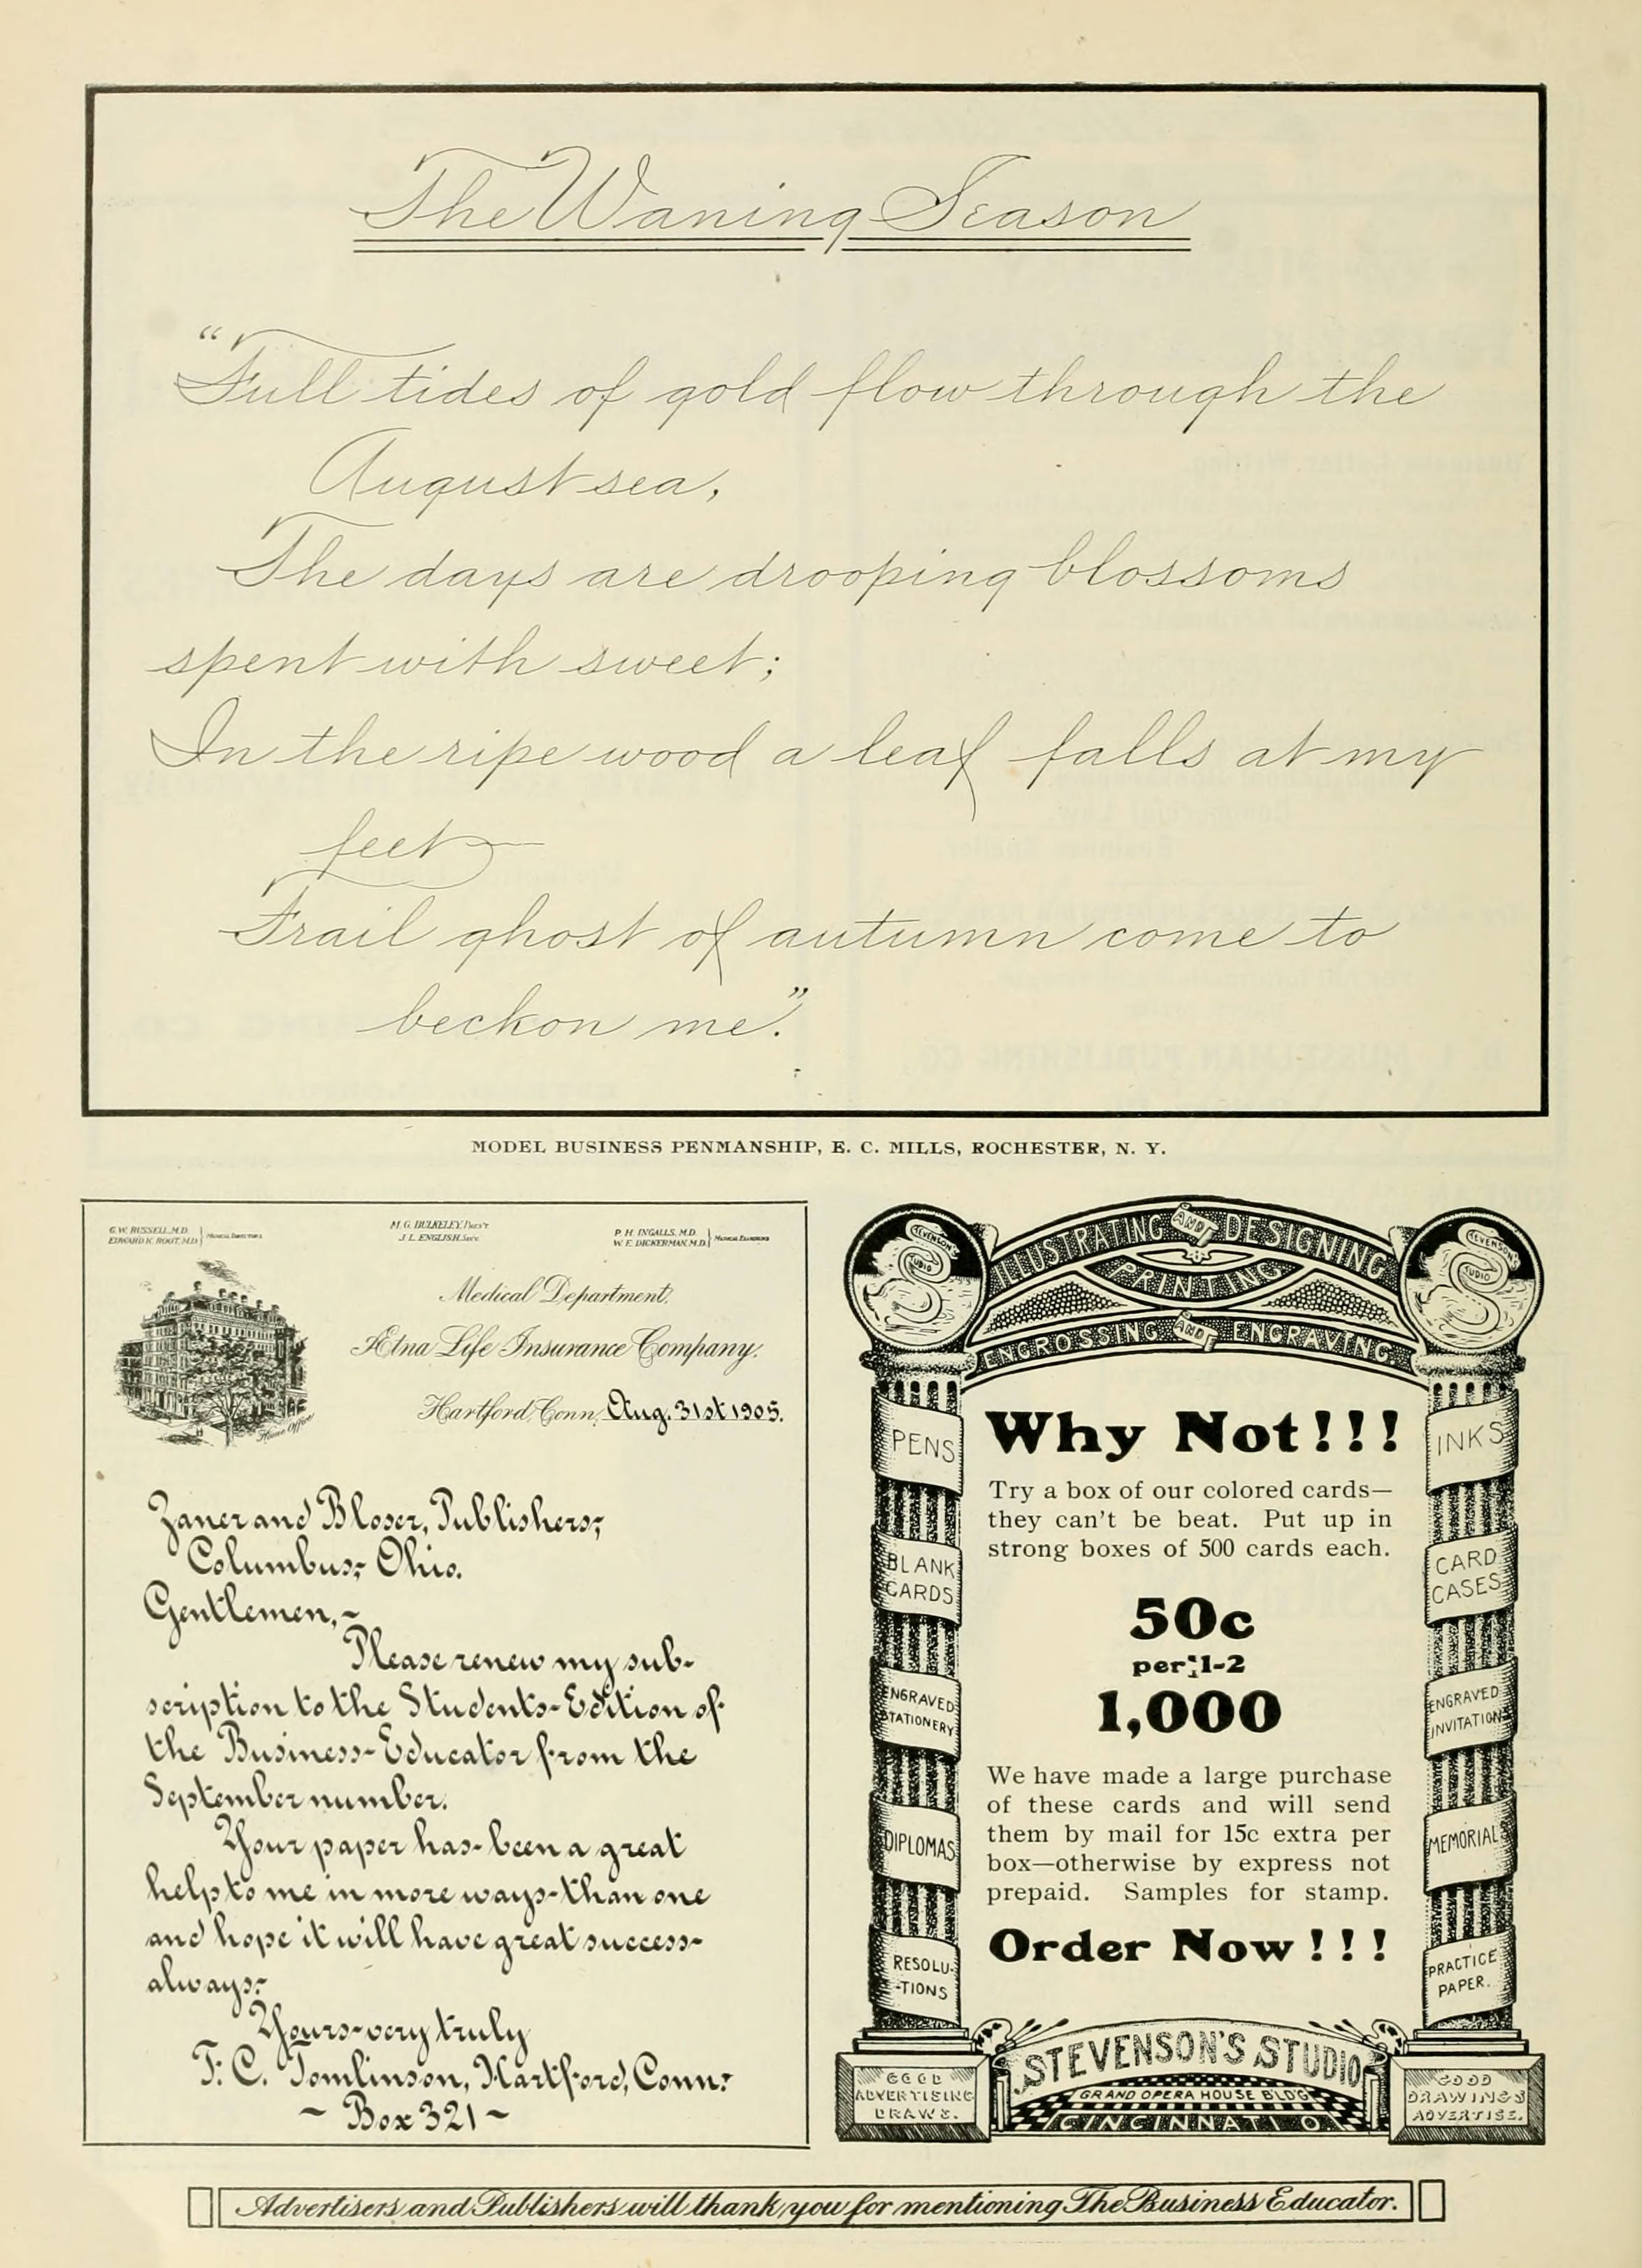 The Waning Season
"Full tides of gold flow through the
August sea,
The days are drooping blossoms
spent with sweet;
In the ripe wood a leaf falls at my
feet
Frail ghost of autumn come to
beckon me."
MODEL BUSINESS PENMANSHIP, E. C. MILLS, ROCHESTER, N. Y.
G. W. RUSSELL, M.D.
EDWARD K. ROOT, M.D. } MEDICAL DIRECTORS
M. G. BULKELEY, PRES'T
J. L. ENGLISH, SEC'Y.
P. H. INGALLS, M.D.
W. E. DICKERMAN, M.D. } MEDICAL EXAMINERS
Medical Department,
Ætna Life Insurance Company.
Home Office
Hartford, Conn, Aug. 31st 1905.
Zaner and Bloser, Publishers,
Columbus, Ohio.
Gentlemen,~
Please renew my sub-
scription to the Students-Edition of
the Business-Educator from the
September number.
Your paper has been a great
help to me in more ways than one
and hope it will have great success
always.
Yours very truly
F. C. Tomlinson, Hartford, Conn.
~ Box 321 ~
STEVENSON'S STUDIO
ILLUSTRATING AND DESIGNING
STEVENSON'S STUDIO
PRINTING
ENGROSSING AND ENGRAVING.
PENS
BLANK CARDS
ENGRAVED STATIONERY
DIPLOMAS
RESOLU-
-TIONS
Why Not!!!
Try a box of our colored cards—
they can't be beat. Put up in
strong boxes of 500 cards each.
50c
per 1-2
1,000
We have made a large purchase
of these cards and will send
them by mail for 15c extra per
box—otherwise by express not
prepaid. Samples for stamp.
Order Now!!!
INKS
CARD CASES
ENGRAVED INVITATIONS
MEMORIALS
PRACTICE PAPER.
STEVENSON'S STUDIO
GRAND OPERA HOUSE BLD'G
CINCINNATI O.
GOOD
ADVERTISING
DRAWS.
GOOD
DRAWINGS
ADVERTISE.
Advertisers and Publishers will thank you for mentioning The Business Educator.